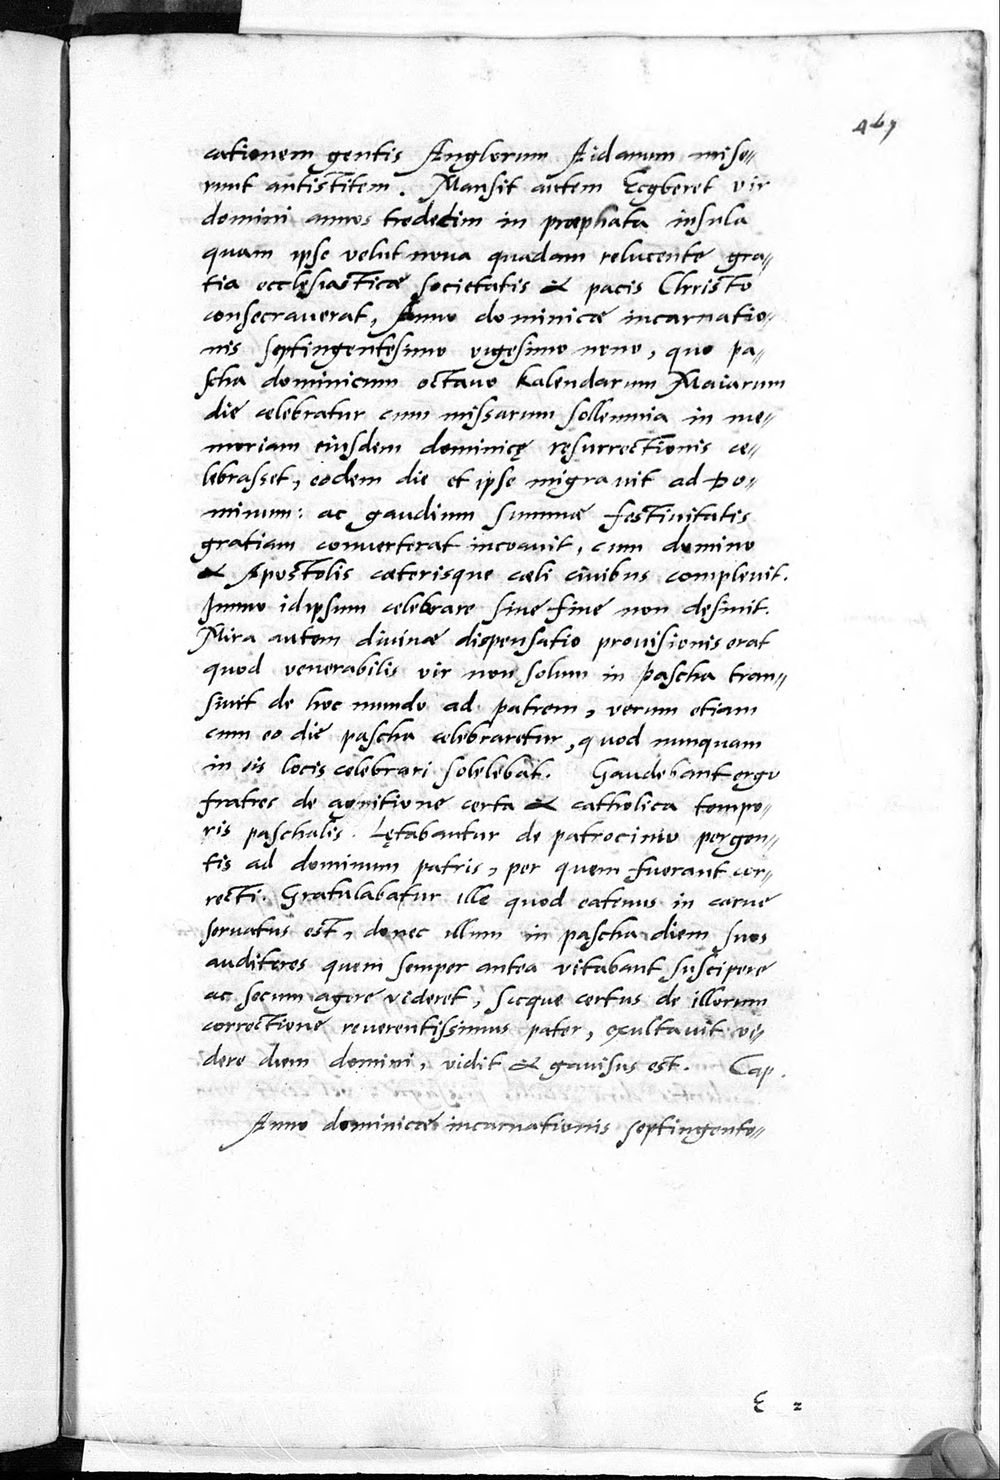 467
cationem gentis Anglorum Aidanum mise〃
runt antistitem. Mansit autem Ecgberet vir
domini annos tredecim in præphata insula
quam ipse velut noua quadam relucente gra〃
tia ecclesiasticæ societatis & pacis Christo
consecrauerat, Anno dominicæ incarnatio〃
nis septingentesimo vigesimo nono, quo pa〃
scha dominicum octauo kalendarum Maiarum
die celebratur cum missarum sollemnia in me〃
moriam eiusdem dominicę resurrectionis ce〃
lebrasset, eodem die et ipse migrauit ad Do〃
minum: ac gaudium summæ festiuitatis
gratiam conuerterat incoauit, cum domino
& Apostolis cæterisque cæli ciuibus compleuit.
Immo idipsum celebrare sine fine non desinit.
Mira autem diuinæ dispensatio prouisionis erat
quod venerabilis vir non solum in pascha tran〃
siuit de hoc mundo ad patrem, verum etiam
cum eo die pascha celebraretur, quod nunquam
in eis locis celebrari solelebat. Gaudebant ergo
fratres de agnitione certa & catholica tempo〃
ris paschalis. Lętabantur de patrocinio pergen〃
tis ad dominum patris, per quem fuerant cor〃
recti. Gratulabatur ille quod eatenus in carne
seruatus est, donec illum in pascha diem suos
auditores quem semper antea vitabant suscipere
ac secum agere videret, sicque certus de illorum
correctione reuerentissimus pater, exultauit vi〃
dere diem domini, vidit & gauisus est. Cap.
Anno dominicæ incarnationis septingente〃
E 2